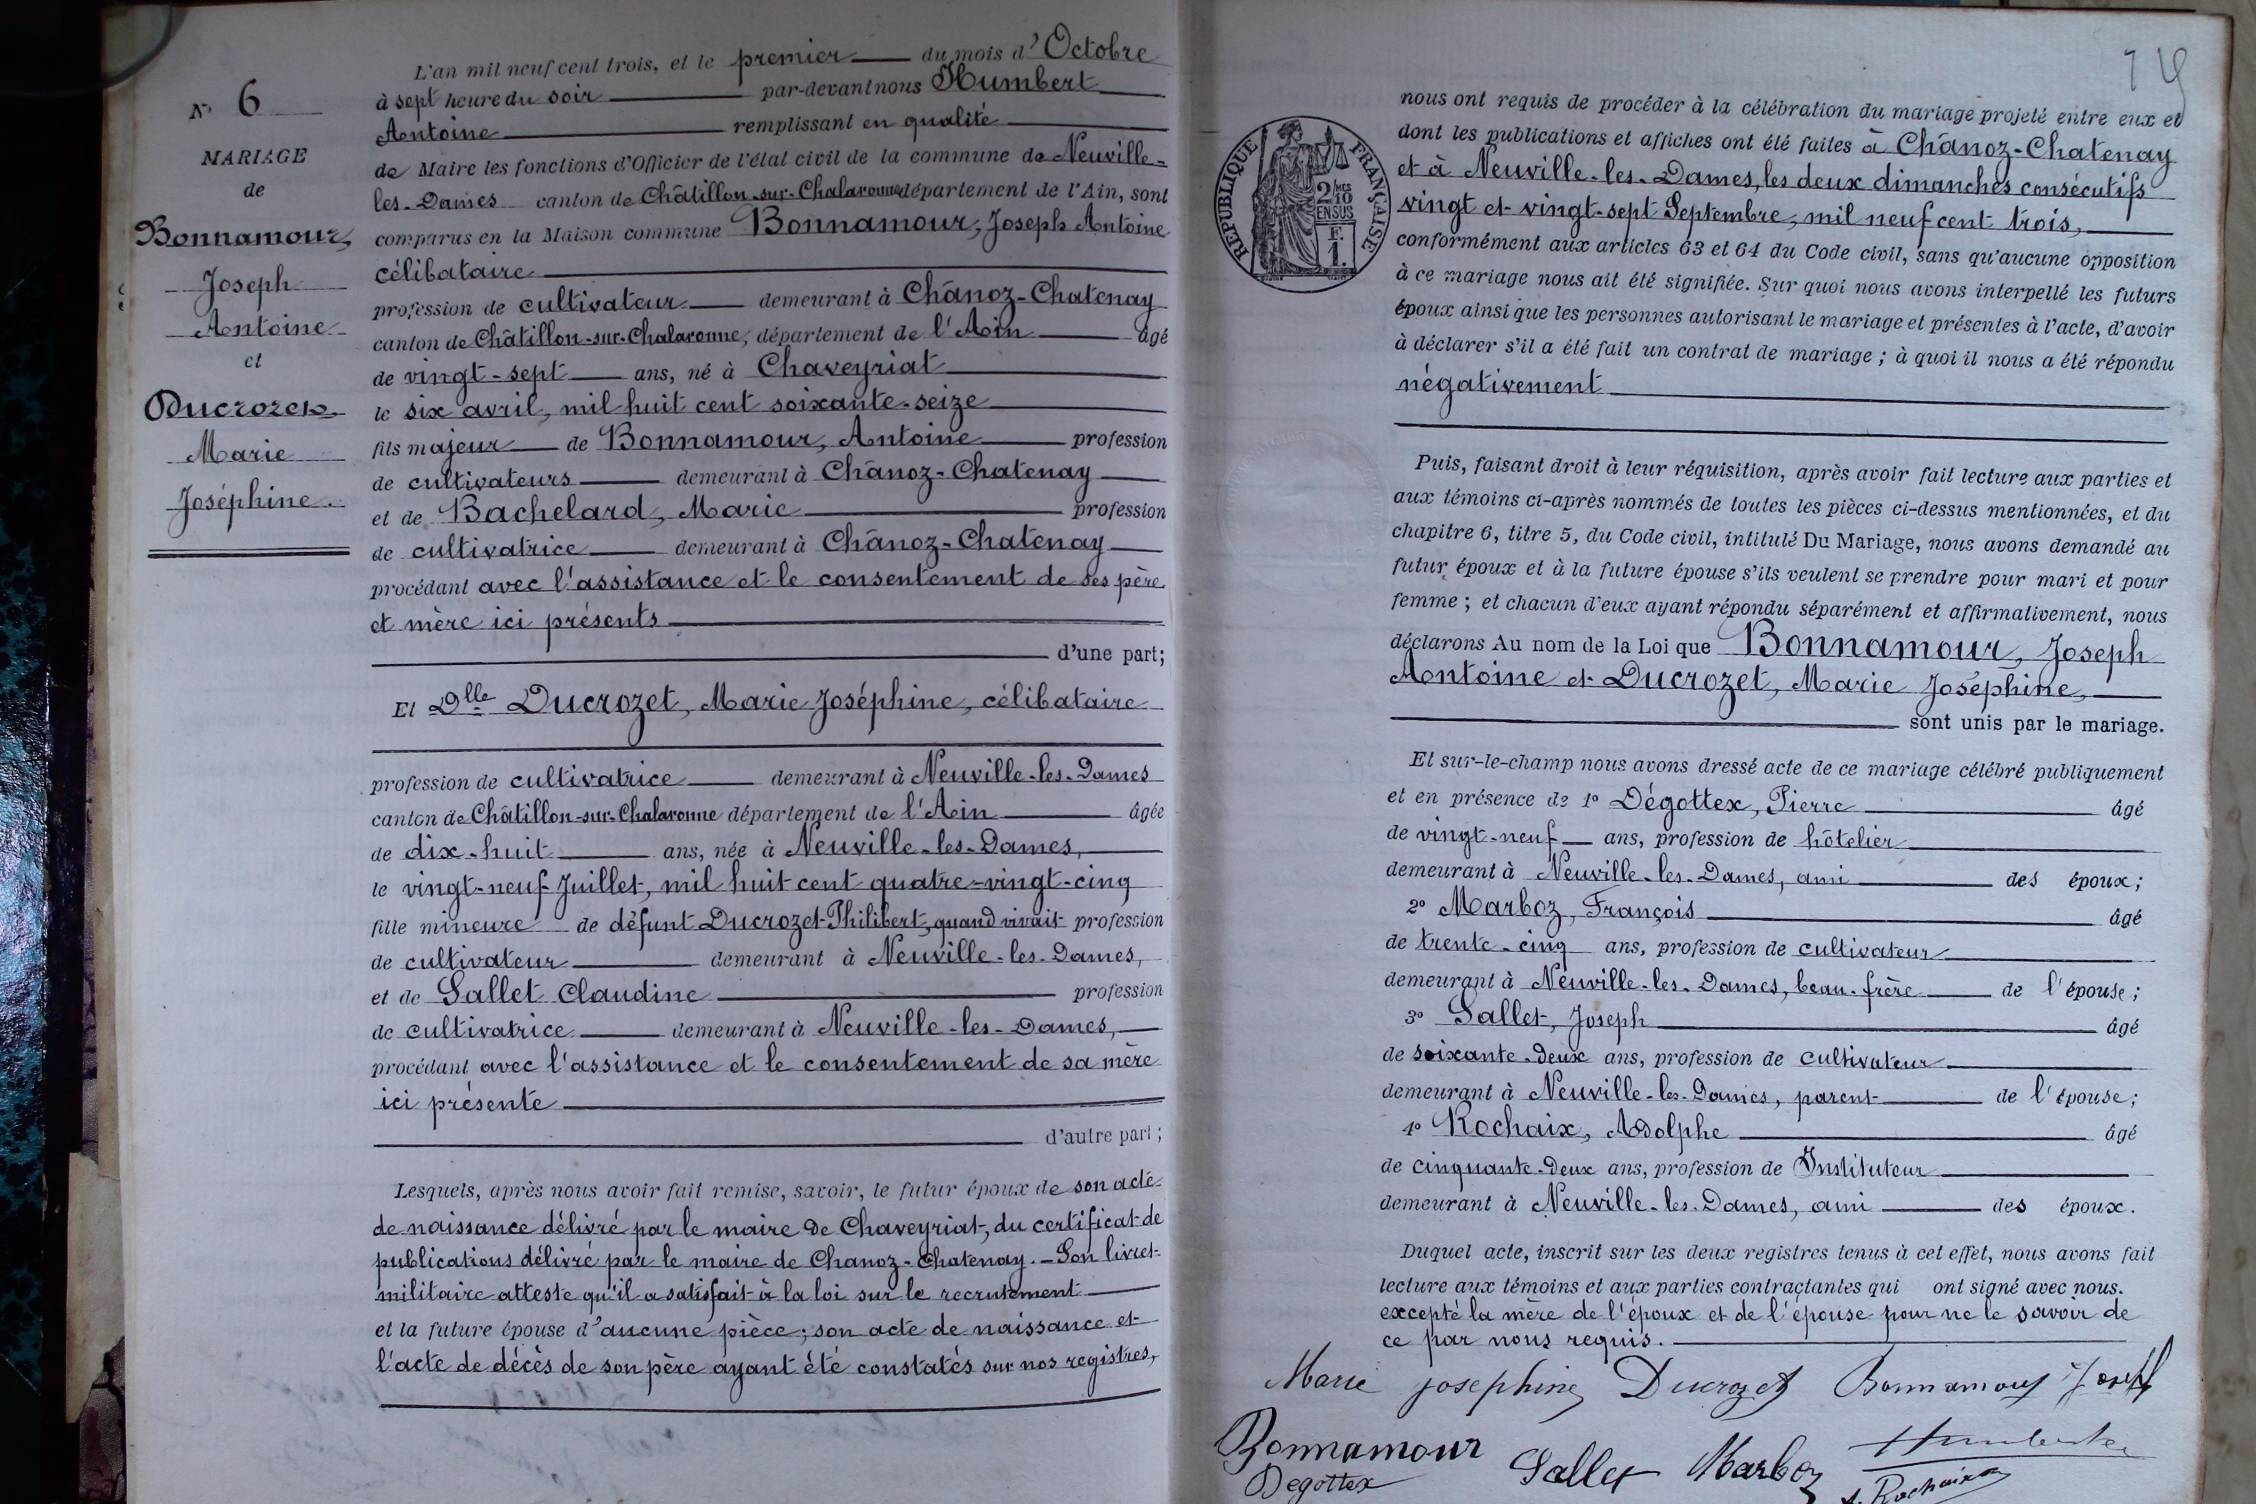 N° 6
MARIAGE
de
Bonnamour,
Joseph
Antoine
et
Ducrozet
Marie
Joséphine.
L'an mil neuf cent trois, et le premier du mois d'Octobre
à sept heure du soir par-devant nous Humbert
Antoine remplissant en qualité
de Maire les fonctions d'Officier de l'état civil de la commune de Neuville-
les-Dames canton de Châtillon-sur-Chalaronne département de l'Ain, sont
comparus en la Maison commune Bonnamour, Joseph Antoine
célibataire
profession de cultivateur demeurant à Chânoz-Chatenay
canton de Châtillon-sur-Chalaronne, département de l'Ain âgé
de vingt-sept ans, né à Chaveyriat
le six avril, mil huit cent soixante-seize
fils majeur de Bonnamour, Antoine profession
de cultivateurs demeurant à Chânoz-Chatenay
et de Bachelard, Marie profession
de cultivatrice demeurant à Chânoz-Chatenay
procédant avec l'assistance et le consentement de ses père
et mère ici présents
d'une part;
Et Dlle Ducrozet, Marie Joséphine, célibataire
profession de cultivatrice demeurant à Neuville-les-Dames
canton de Châtillon-sur-Chalaronne département de l'Ain âgée
de dix-huit ans, née à Neuville-les-Dames,
le vingt-neuf Juillet, mil huit cent quatre-vingt-cinq
fille mineure de défunt Ducrozet Philibert, quand vivait profession
de cultivateur demeurant à Neuville-les-Dames,
et de Sallet Claudine profession
de cultivatrice demeurant à Neuville-les-Dames,
procédant avec l'assistance et le consentement de sa mère
ici présente
d'autre part;
Lesquels, après nous avoir fait remise, savoir, le futur époux de son acte
de naissance délivré par le maire de Chaveyriat, du certificat de
publications délivré par le maire de Chanoz-Chatenay. - Son livret
militaire atteste qu'il a satisfait à la loi sur le recrutement
et la future épouse d'aucune pièce; son acte de naissance et
l'acte de décès de son père ayant été constatés sur nos registres,
RÉPUBLIQUE FRANÇAISE
2/10
EN SUS
F.
1.
nous ont requis de procéder à la célébration du mariage projeté entre eux et
dont les publications et affiches ont été faites à Chânoz-Chatenay
et à Neuville-les-Dames, les deux dimanches consécutifs
vingt et vingt-sept Septembre, mil neuf cent trois,
conformément aux articles 63 et 64 du Code civil, sans qu'aucune opposition
à ce mariage nous ait été signifiée. Sur quoi nous avons interpellé les futurs
époux ainsi que les personnes autorisant le mariage et présentes à l'acte, d'avoir
à déclarer s'il a été fait un contrat de mariage ; à quoi il nous a été répondu
négativement
Puis, faisant droit à leur réquisition, après avoir fait lecture aux parties et
aux témoins ci-après nommés de toutes les pièces ci-dessus mentionnées, et du
chapitre 6, titre 5, du Code civil, intitulé Du Mariage, nous avons demandé au
futur époux et à la future épouse s'ils veulent se prendre pour mari et pour
femme ; et chacun d'eux ayant répondu séparément et affirmativement, nous
déclarons Au nom de la Loi que Bonnamour, Joseph
Antoine et Ducrozet, Marie Joséphine,
sont unis par le mariage.
Et sur-le-champ nous avons dressé acte de ce mariage célébré publiquement
et en présence de 1° Dégottex, Pierre âgé
de vingt-neuf ans, profession de hôtelier
demeurant à Neuville-les-Dames, ami des époux;
2° Marboz, François âgé
de trente-cinq ans, profession de cultivateur
demeurant à Neuville-les-Dames, beau-frère de l'épouse;
3° Sallet, Joseph âgé
de soixante-deux ans, profession de cultivateur
demeurant à Neuville-les-Dames, parent de l'épouse;
4° Rochaix, Adolphe âgé
de cinquante-deux ans, profession de Instituteur
demeurant à Neuville-les-Dames, ami des époux.
Duquel acte, inscrit sur les deux registres tenus à cet effet, nous avons fait
lecture aux témoins et aux parties contractantes qui ont signé avec nous.
excepté la mère de l'époux et de l'épouse pour ne le savoir de
ce par nous requis.
Marie josephine Ducrozet Bonnamour Joseph
Bonnamour Sallet Marboz Humbert
Degottex A. Rochaix